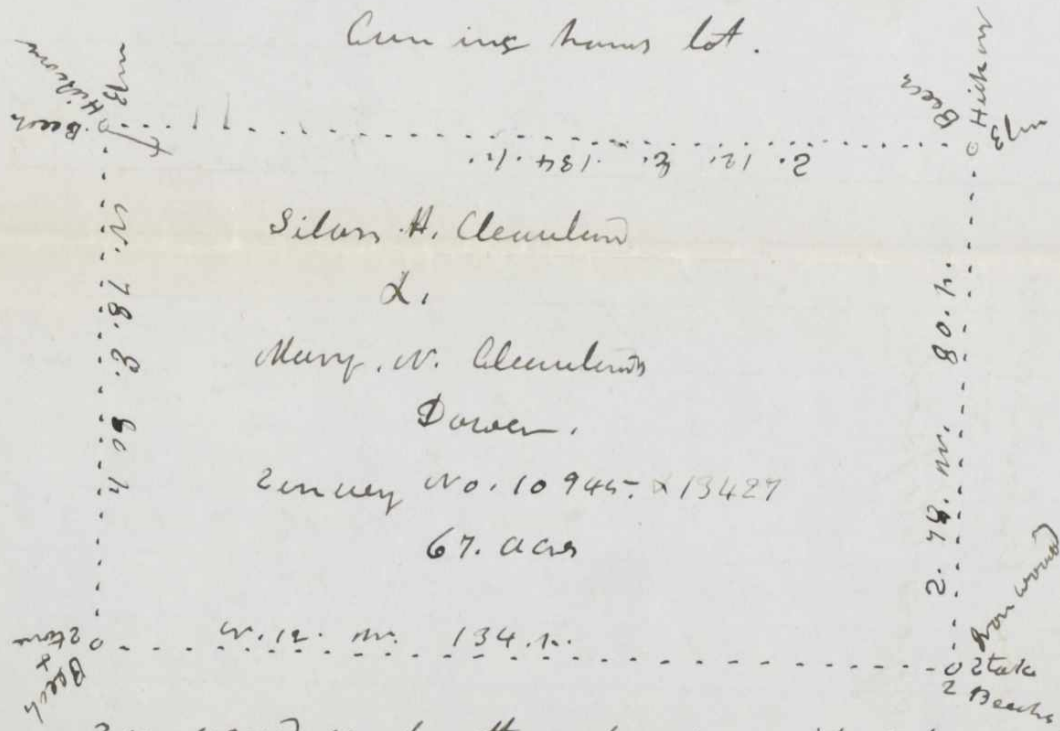 Cuninghams lot.
Elm
Hickory
Beech
Beech
Hickory
Elm
S. 12. E. 134. p.
N. 78. E. 80 p
Silas H. Cleaveland
&
Mary. N. Cleavelands
Dower.
Survey No. 10945. & 13427
67. acres
S. 78. W. 80. p.
N. 12. W. 134. p.
Stone
&
Beech
Iron wood
Stake
2 Beechs